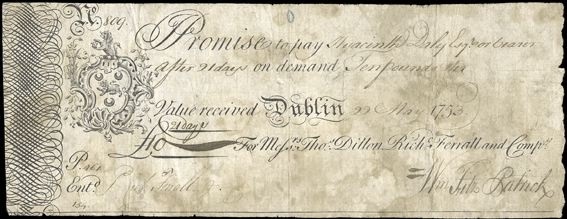 No. 809.
Promise to pay Hyacinth Daly Esqr. or bearer
After 21 days on demand Ten pounds Ster
Value received Dublin 22 May 1753
21 days
£10 For Messrs. Thos. Dillon, Richd. Ferrall and Compy.
Entd.
Wm Fitz Patrick